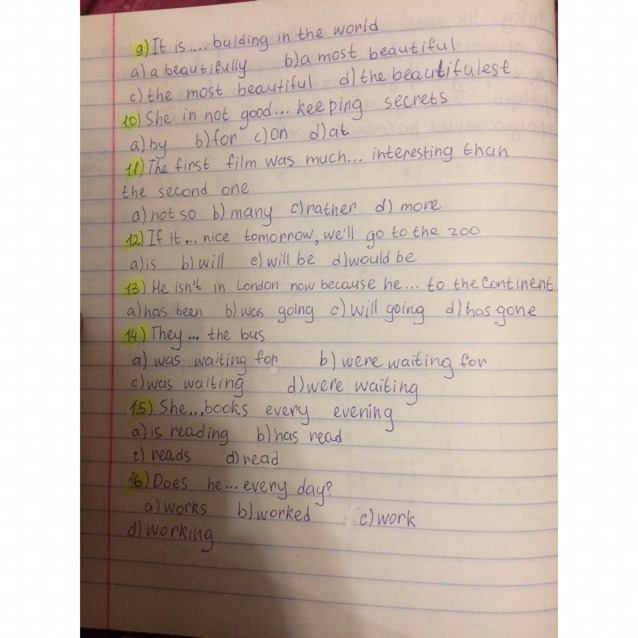 9) It is .... bulding in the world
a) a beautifully b) a most beautiful
c) the most beautiful d) the beautifulest
10) She in not good... keeping secrets
a) by b) for c) on d) at
11) The first film was much... interesting than
the second one
a) not so b) many c) rather d) more
12) If it ... nice tomorrow, we'll go to the zoo
a) is b) will c) will be d) would be
13) He isn't in London now because he ... to the Continent
a) has been b) was going c) will going d) has gone
14) They ... the bus
a) was waiting for b) were waiting for
c) was waiting d) were waiting
15) She...books every evening
a) is reading b) has read
c) reads d) read
16) Does he...every day?
a) works b) worked c) work
d) working